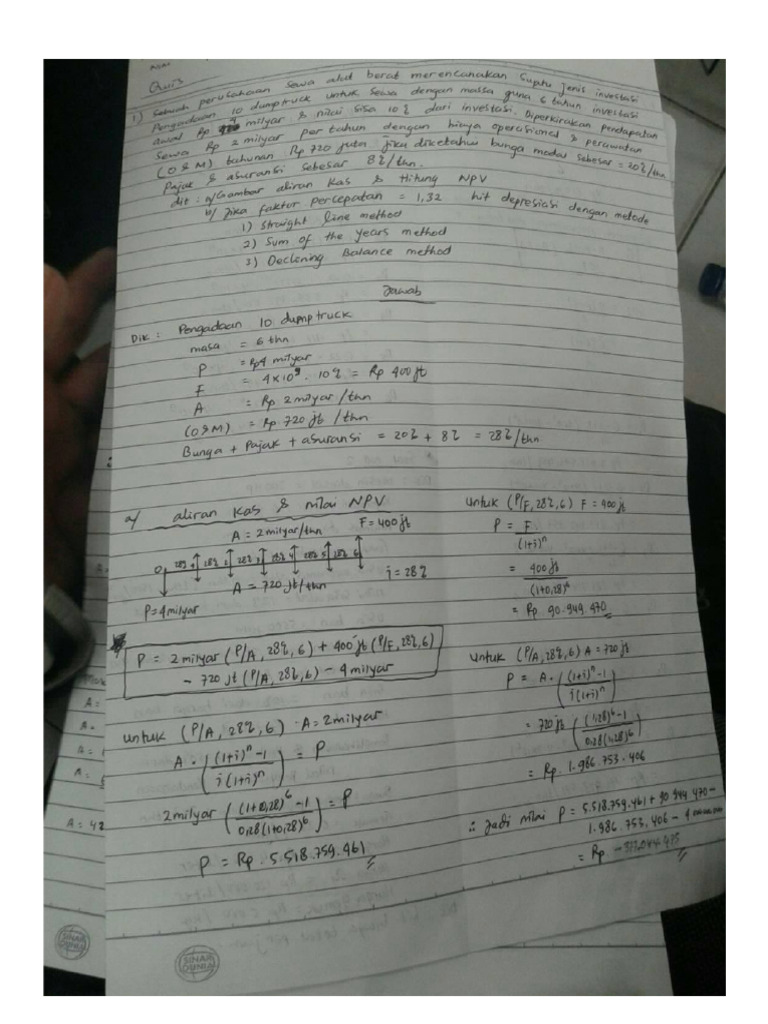 Quis
1) Sebuah perusahaan sewa alat berat merencanakan suatu jenis investasi
Pengadaan 10 dumptruck untuk sewa dengan massa guna 6 tahun investasi
awal Rp 4 milyar & nilai sisa 10% dari investasi. Diperkirakan pendapatan
Sewa Rp 2 milyar per tahun dengan biaya operasional & perawatan
(O&M) tahunan Rp 720 juta jika diketahui bunga modal sebesar = 20%/thn
Pajak & asuransi sebesar 8%/thn.
dit : a/ Gambar aliran kas & Hitung NPV
b/ Jika faktur percepatan = 1,32 hit depresiasi dengan metode
1) Straight line method
2) Sum of the years method
3) Declening Balance method
Jawab
Dik : Pengadaan 10 dumptruck
masa = 6 thn
P = Rp4 milyar
F = 4x10⁹ . 10% = Rp 400 jt
A = Rp 2 milyar/thn
(O&M) = Rp 720 jt /thn
Bunga + Pajak + asuransi = 20% + 8% = 28%/thn
a/ aliran kas & nilai NPV
A = 2 milyar/thn F = 400 jt
0 28% 1 28% 2 28% 3 28% 4 28% 5 28% 6
i = 28%
A = 720 jt/thn
P = 4 milyar
P = 2 milyar (P/A, 28%, 6) + 400 jt (P/F, 28%, 6)
- 720 jt (P/A, 28%, 6) - 4 milyar
untuk (P/A, 28%, 6) A = 2 milyar
A . ((1+i)ⁿ -1 / i(1+i)ⁿ) = P
2 milyar ((1+0,28)⁶ -1 / 0,28(1+0,28)⁶) = P
P = Rp. 5.518.759.461
untuk (P/F, 28%, 6) F = 400 jt
P = F / (1+i)ⁿ
= 400 jt / (1+0,28)⁶
= Rp 90.949.470
untuk (P/A, 28%, 6) A = 720 jt
P = A . ((1+i)ⁿ -1 / i(1+i)ⁿ)
= 720 jt ((1,28)⁶ -1 / 0,28(1,28)⁶)
= Rp. 1.986.753.406
∴ Jadi nilai P = 5.518.759.461 + 90.949.470 -
1.986.753.406 - 4
= Rp
A =
A =
A =
A =
A = 42
SINAR DUNIA
SINAR DUNIA